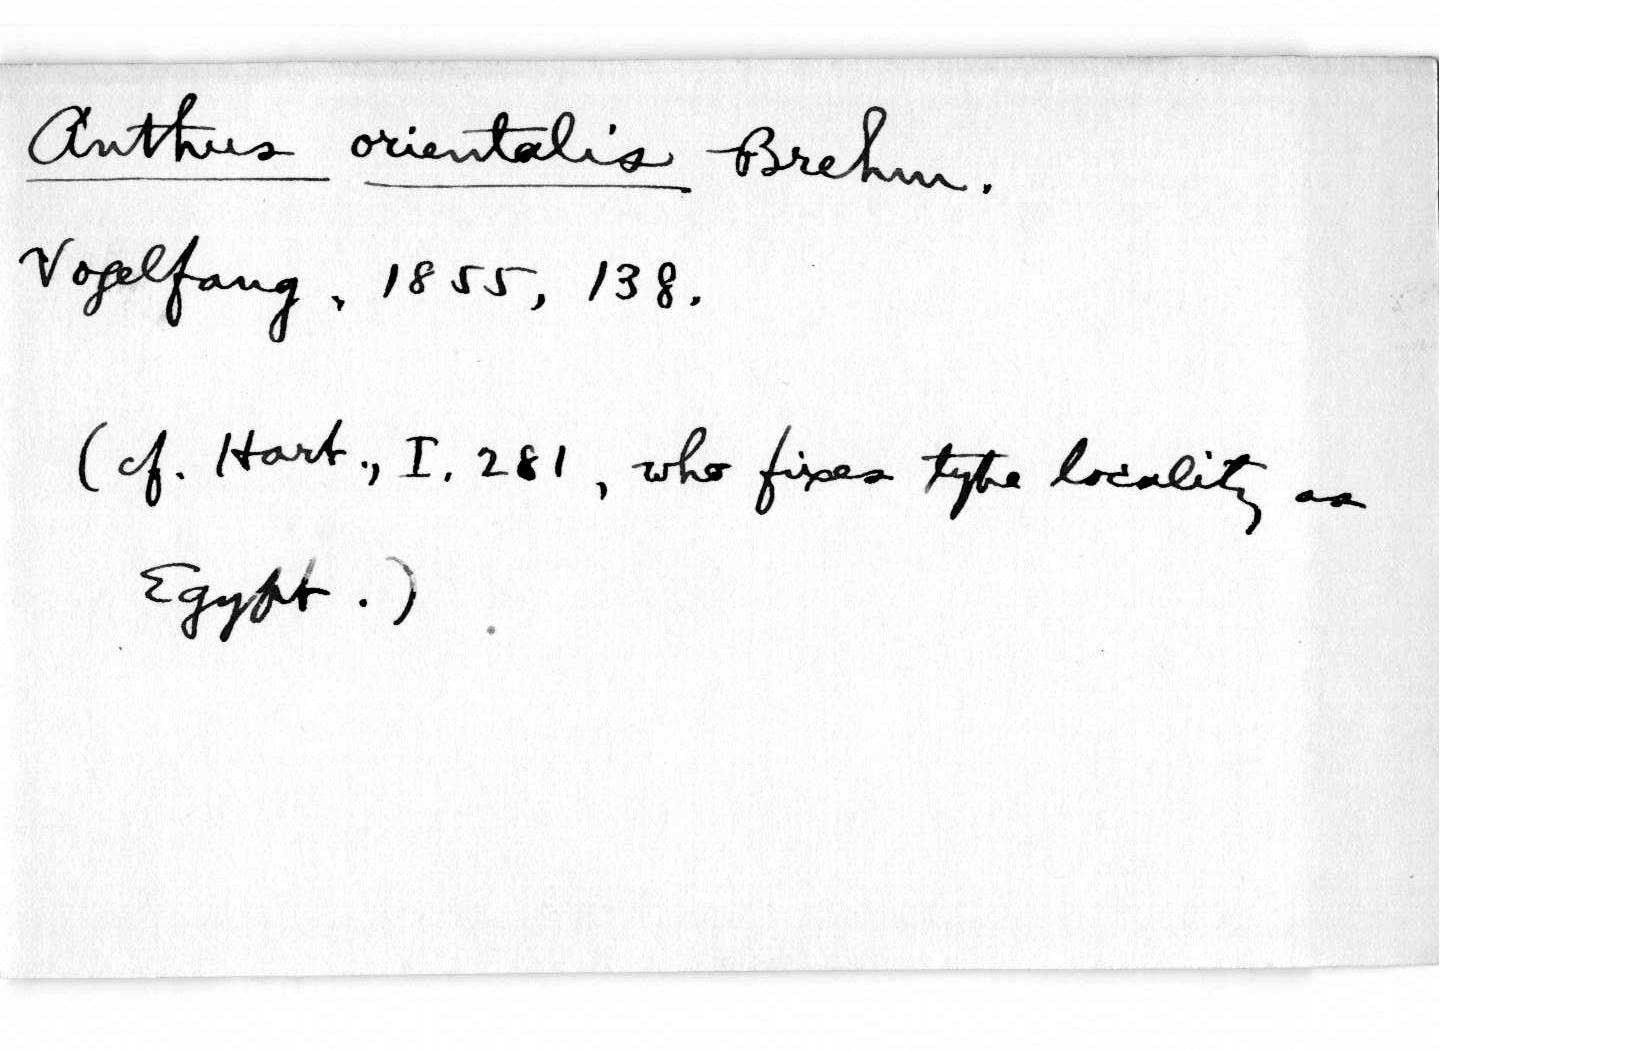 Anthus orientalis Brehm.
Vogelfang, 1855, 138.
(cf. Hart., I. 281, who fixes type locality as
Egypt.)